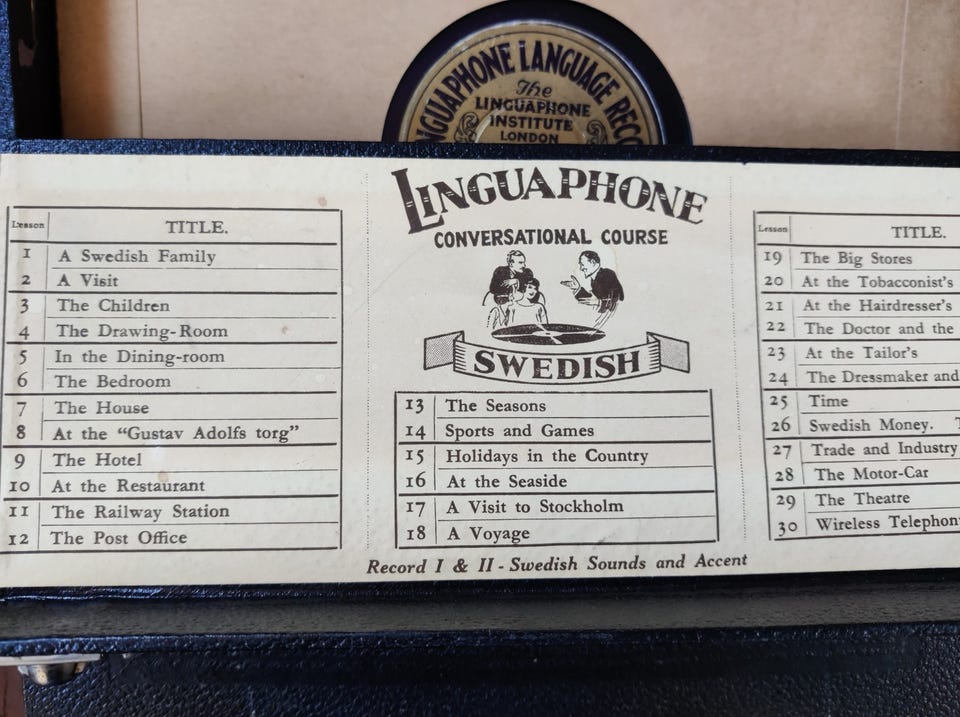 LINGUAPHONE LANGUAGE
The
LINGUAPHONE
INSTITUTE
LONDON
Lesson TITLE.
1 A Swedish Family
2 A Visit
3 The Children
4 The Drawing-Room
5 In the Dining-room
6 The Bedroom
7 The House
8 At the “Gustav Adolfs torg”
9 The Hotel
10 At the Restaurant
11 The Railway Station
12 The Post Office
LINGUAPHONE
CONVERSATIONAL COURSE
SWEDISH
13 The Seasons
14 Sports and Games
15 Holidays in the Country
16 At the Seaside
17 A Visit to Stockholm
18 A Voyage
Record I & II - Swedish Sounds and Accent
Lesson TITLE.
19 The Big Stores
20 At the Tobacconist's
21 At the Hairdresser's
22 The Doctor and the
23 At the Tailor's
24 The Dressmaker and
25 Time
26 Swedish Money.
27 Trade and Industry
28 The Motor-Car
29 The Theatre
30 Wireless